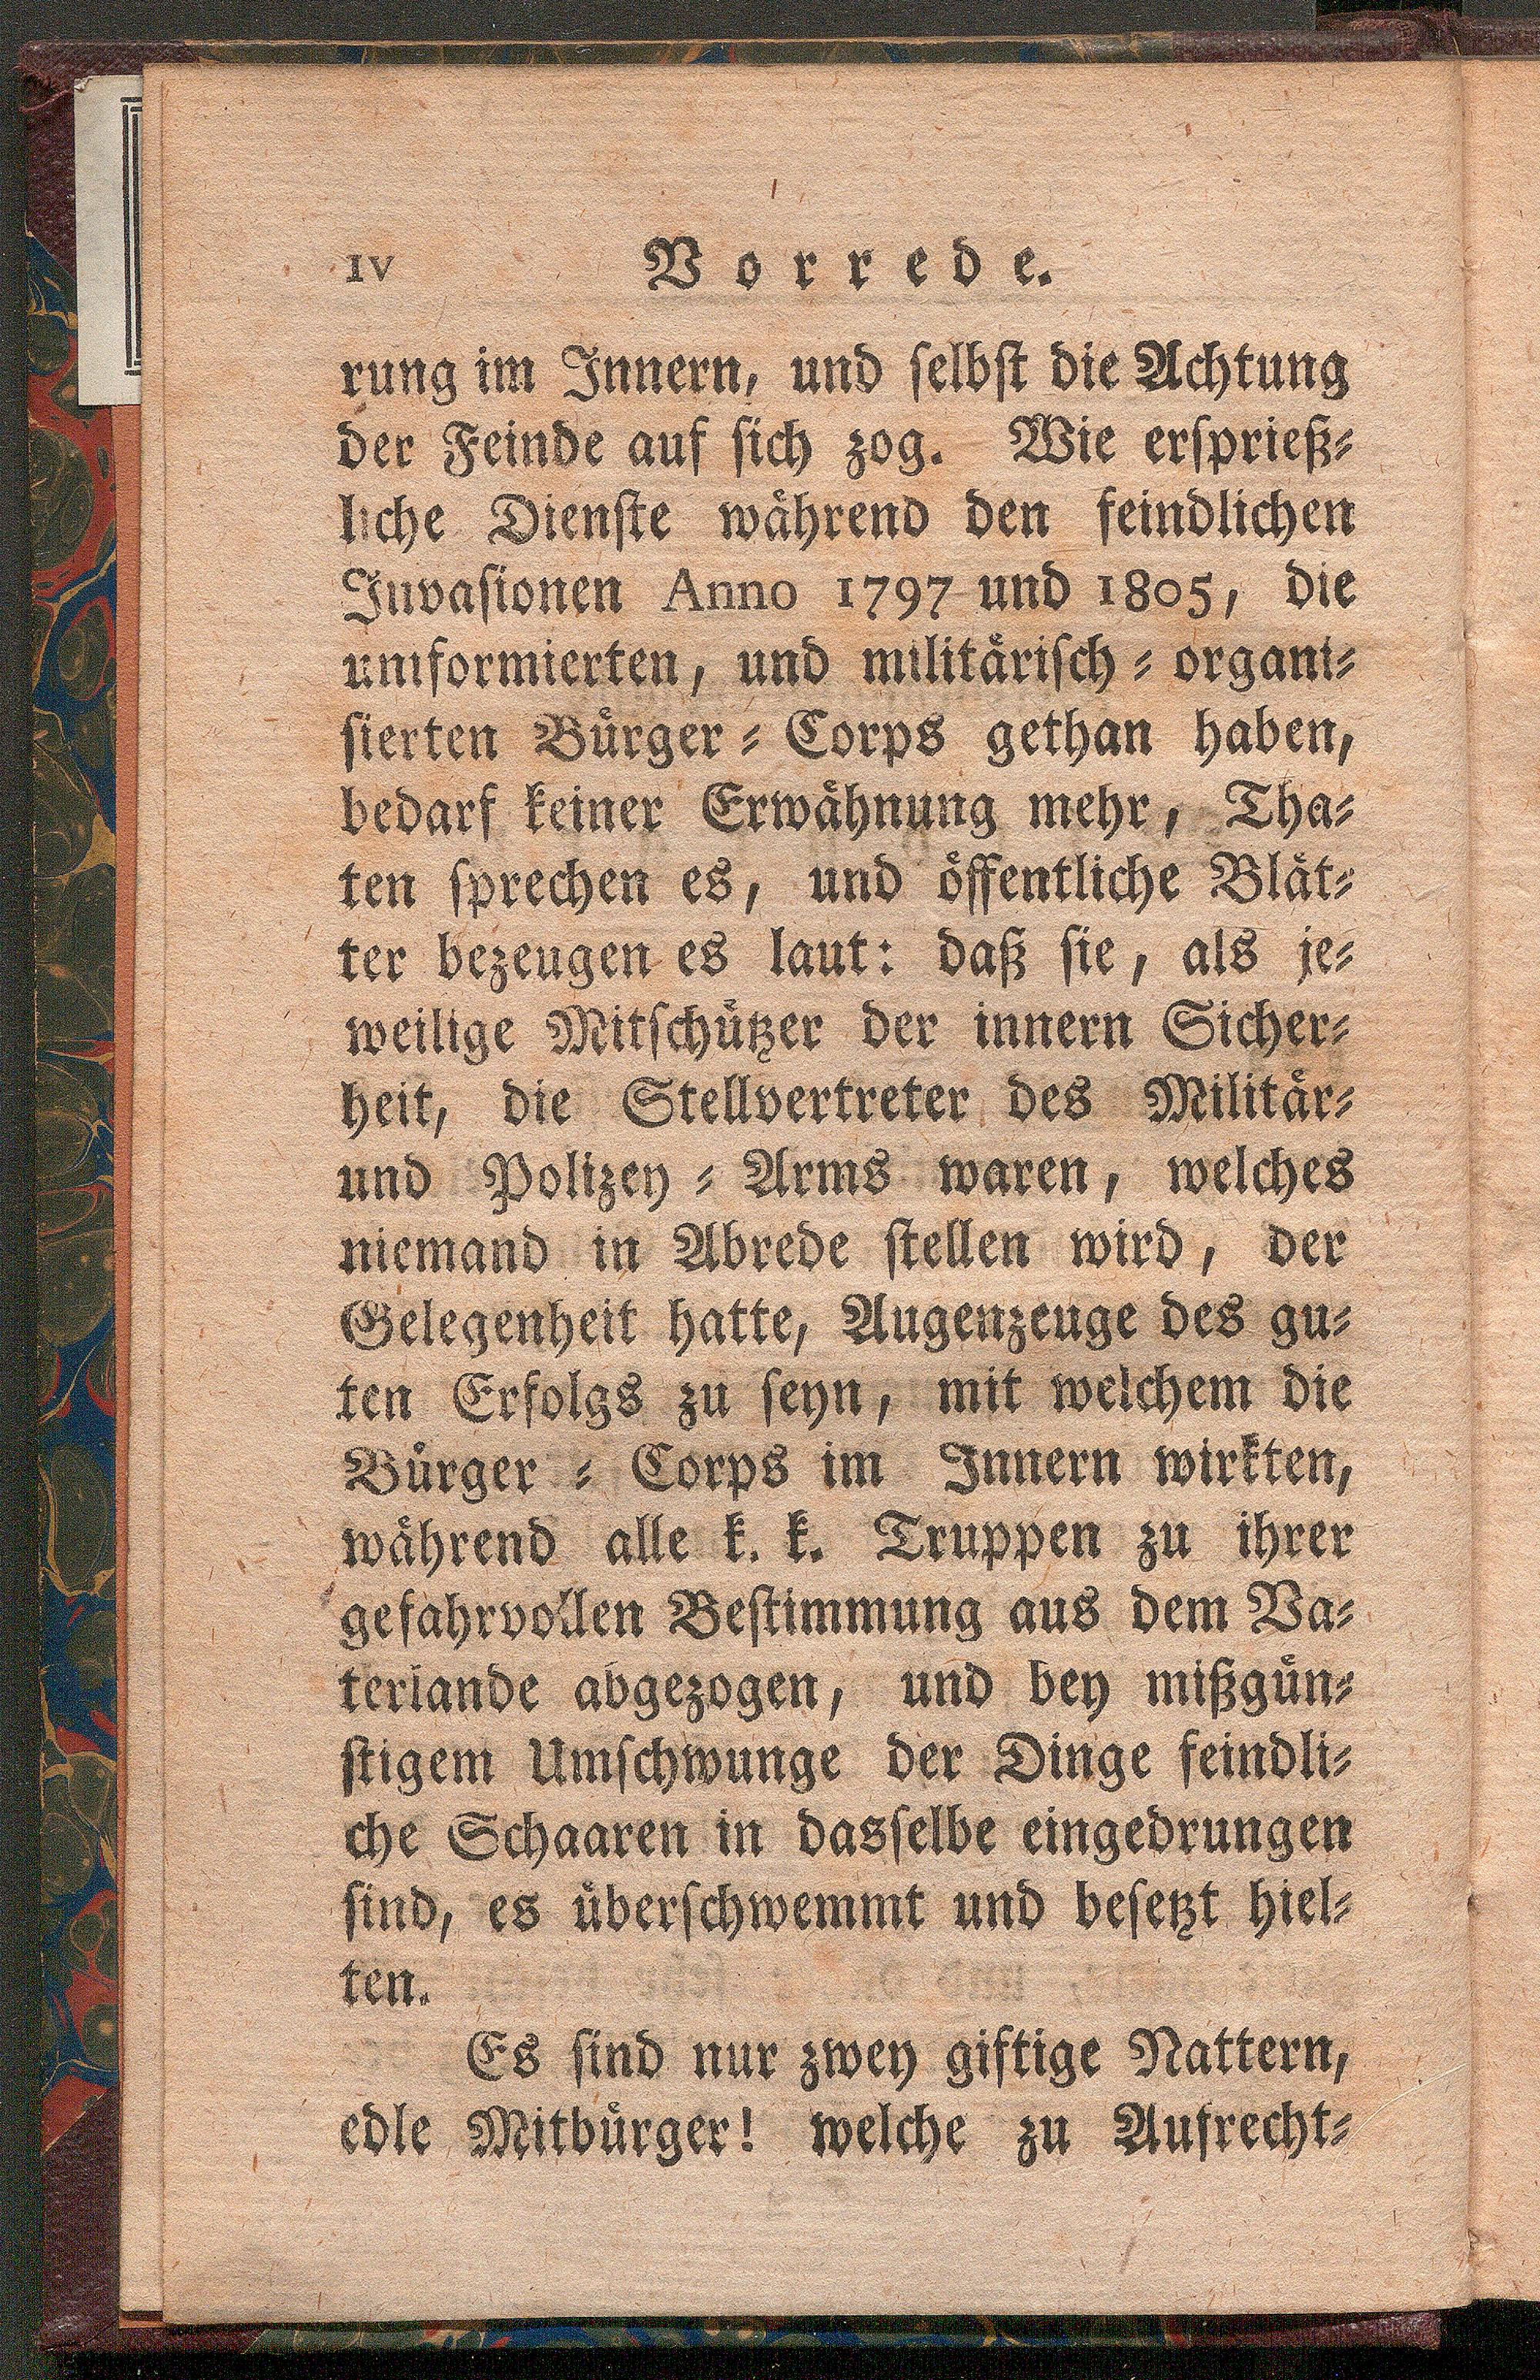 IV Vorrede.
rung im Innern, und selbst die Achtung
der Feinde auf sich zog. Wie ersprieß-
liche Dienste während den feindlichen
Juvasionen Anno 1797 und 1805, die
uniformierten, und militärisch-organi-
sierten Bürger-Corps gethan haben,
bedarf keiner Erwähnung mehr, Tha-
ten sprechen es, und öffentliche Blät-
ter bezeugen es laut: daß sie, als je-
weilige Mitschützer der innern Sicher-
heit, die Stellvertreter des Militär-
und Polizey-Arms waren, welches
niemand in Abrede stellen wird, der
Gelegenheit hatte, Augenzeuge des gu-
ten Erfolgs zu seyn, mit welchem die
Bürger-Corps im Innern wirkten,
während alle k. k. Truppen zu ihrer
gefahrvollen Bestimmung aus dem Va-
terlande abgezogen, und bey mißgün-
stigem Umschwunge der Dinge feindli-
che Schaaren in dasselbe eingedrungen
sind, es überschwemmt und besetzt hiel-
ten.
Es sind nur zwey giftige Nattern,
edle Mitbürger! welche zu Aufrecht-